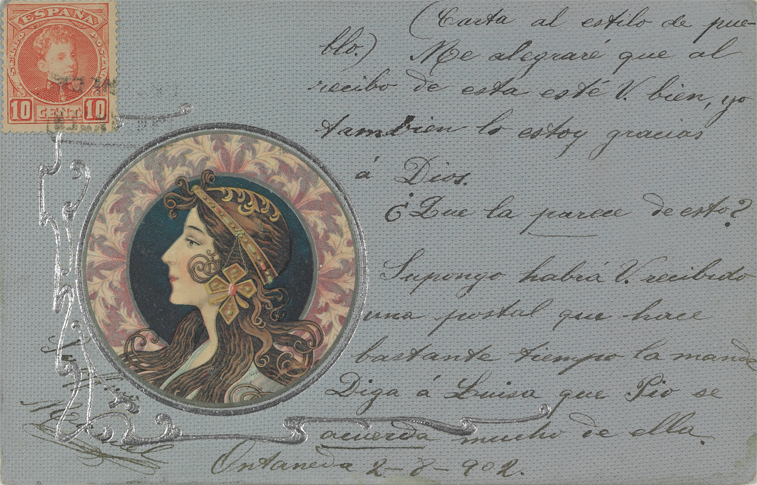 ESPAÑA
10 CENT 10
(Carta al estilo de pue-
blo.) Me alegraré que al
recibo de esta esté V. bien, yo
tambien lo estoy gracias
á Dios.
¿Que la parece de esto?
Supongo habrá V. recibido
una postal que hace
bastante tiempo la mandé
Diga á Luisa que Pio se
acuerda mucho de ella.
Ontaneda 2-8-902.